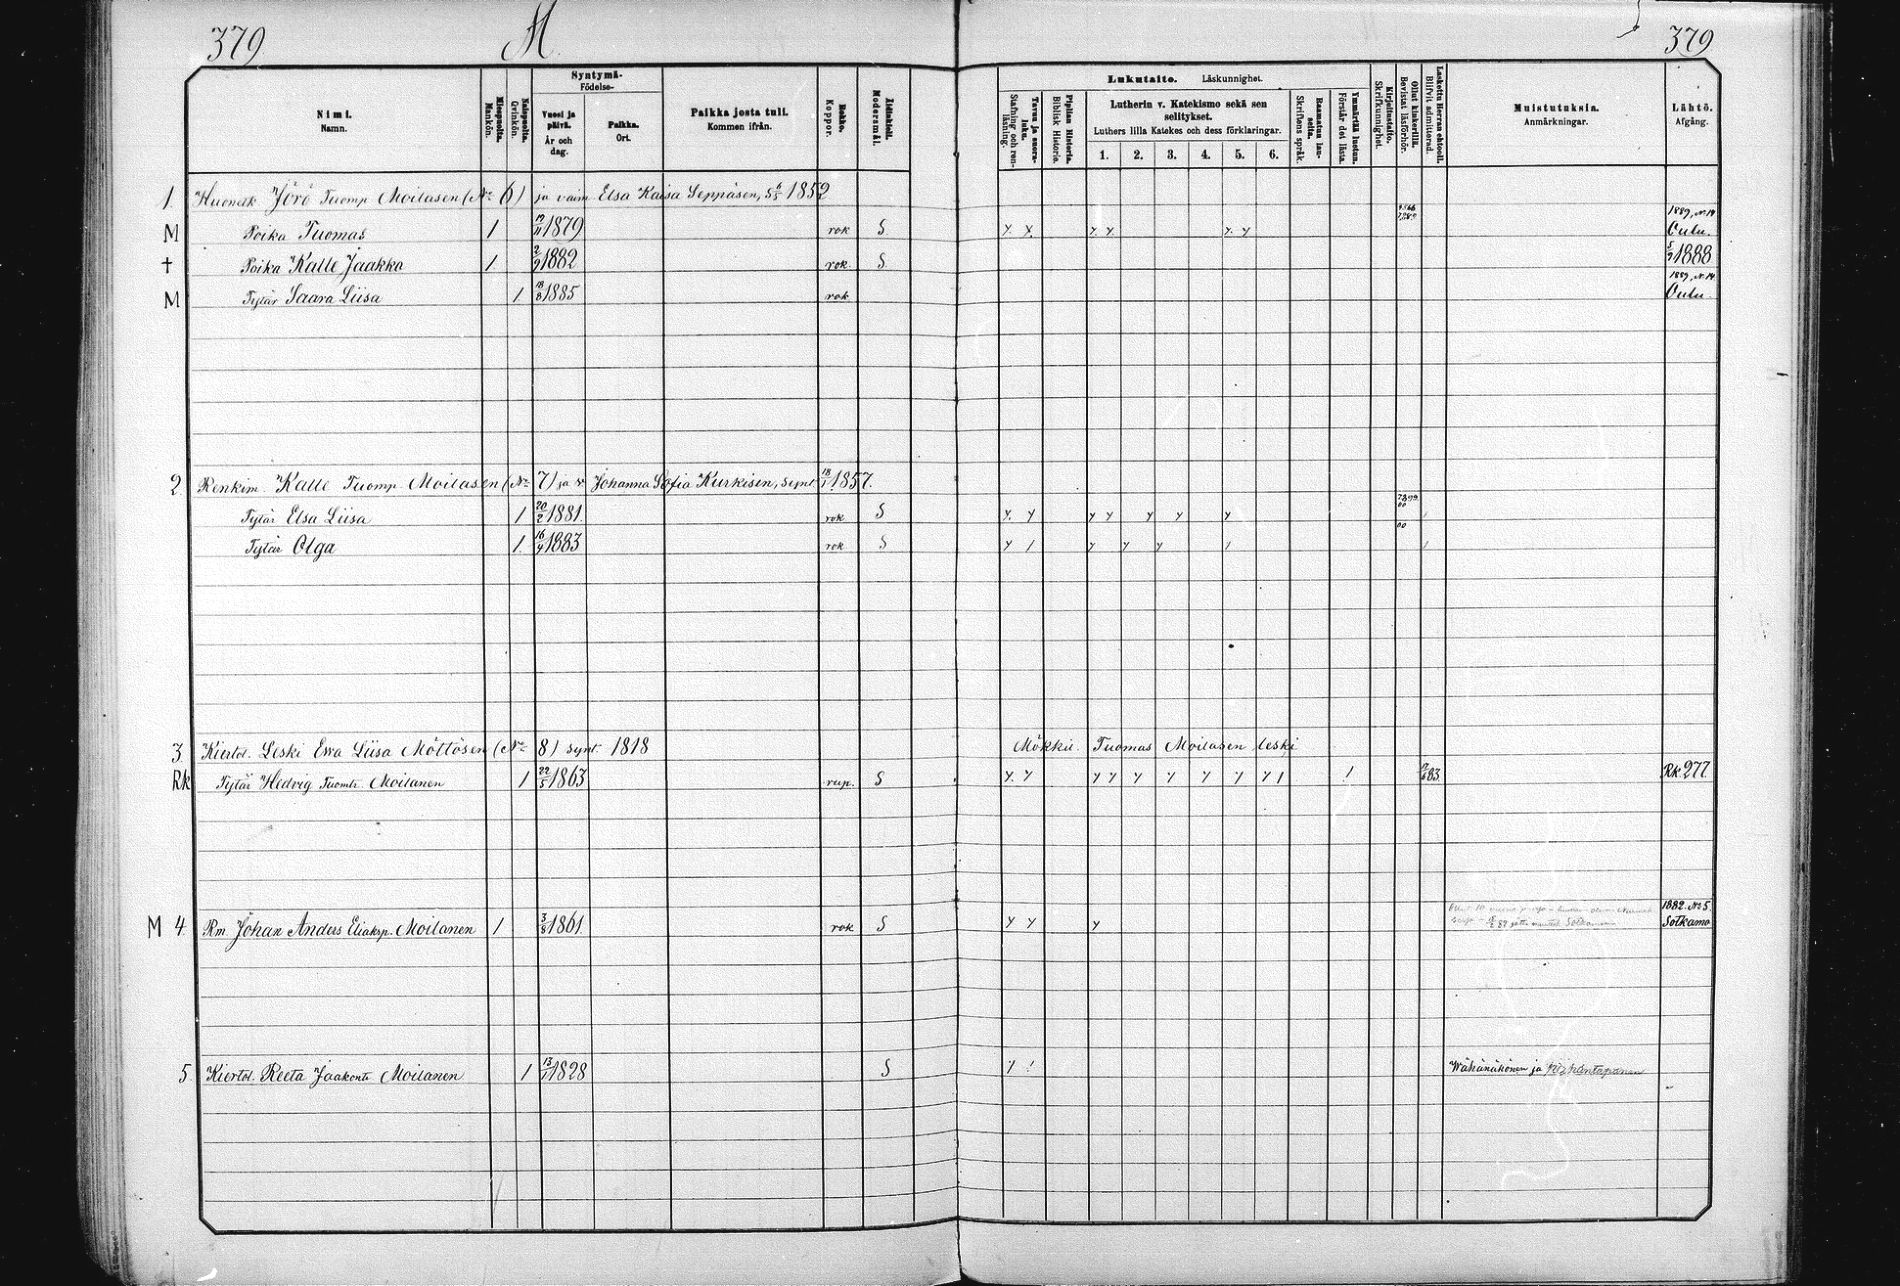 379 M 379
Syntymä-
Födelse-
Nimi.
Namn.
Miespuolia.
Mankön.
Naispuolia.
Qvinkön.
Vuosi ja päivä.
År och dag.
Paikka.
Ort.
Paikka josta tuli.
Kommen ifrån.
Rokko.
Koppor.
Äidinkieli.
Modersmål.
Lukutaito. Läskunnighet.
Tavuu ja suora-luku.
Stafning och ren-läsning.
Piplian Historia.
Biblisk Historia.
Lutherin v. Katekismo sekä sen selitykset.
Luthers lilla Katekes och dess förklaringar.
1. 2. 3. 4. 5. 6.
Raamatun lau-seita.
Skriftens språk.
Ymmärtää luetun.
Förstår det lästa.
Kirjoitustaito.
Skrifkunnighet.
Ollut kinkerillä.
Bevistat läsförhör.
Laskettu Herran ehtool.
Blifvit admitterad.
Muistutuksia.
Anmärkningar.
Lähtö.
Afgång.
1. Huonek Jörö Tuomp Moilasen (No 6) ja vaim Elsa Kaisa Seppäsen, s 6/5 1852
M Poika Tuomas 1 19/11 1879 rok S y y y y y y 1889, No 14 Oulu.
† Poika Kalle Jaakko 1 2/9 1882 rok. S 5/9 1888
M Tytär Saara Liisa 1 18/8 1885 rok 1889, No 14 Oulu.
2. Renkim. Kalle Tuomp. Moilasen (No 7) ja v. Johanna Sofia Kurkisen, synt 18/1 1857.
Tytär Elsa Liisa 1 20/2 1881. rok S y y y y y y y
Tytär Olga 1 16/4 1883 rok S y / y y y / 00 /
3. Kiertol. Leski Ewa Liisa Möttösen (No 8) synt. 1818 Mökkil. Tuomas Moilasen leski
Rk Tytär Hedvig Tuomtr. Moilanen 1 22/5 1863 rup. S y y y y y y y y y 1 / 83 Rk. 277
M 4 Rm. Johan Anders Eliaksp. Moilanen 1 3/8 1861 rok S y y y 1882. No 5 Sotkamo
5 Kiertol. Reeta Jaakontr Moilanen 1 13/1 1828 S Wähänäköinen ja